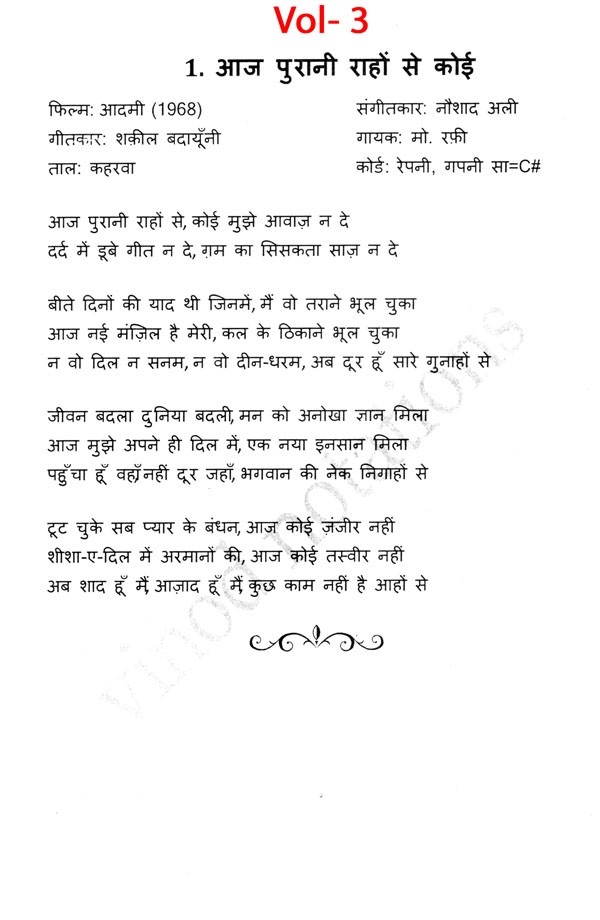 Vol- 3
1. आज पुरानी राहों से कोई
फिल्म: आदमी (1968) संगीतकार: नौशाद अली
गीतकार: शक़ील बदायूँनी गायक: मो. रफ़ी
ताल: कहरवा कोर्ड: रेपनी, गपनी सा=C#
आज पुरानी राहों से, कोई मुझे आवाज़ न दे
दर्द में डूबे गीत न दे, ग़म का सिसकता साज़ न दे
बीते दिनों की याद थी जिनमें, मैं वो तराने भूल चुका
आज नई मंज़िल है मेरी, कल के ठिकाने भूल चुका
न वो दिल न सनम, न वो दीन-धरम, अब दूर हूँ सारे गुनाहों से
जीवन बदला दुनिया बदली, मन को अनोखा ज्ञान मिला
आज मुझे अपने ही दिल में, एक नया इनसान मिला
पहुँचा हूँ वहाँ, नहीं दूर जहाँ, भगवान की नेक निगाहों से
टूट चुके सब प्यार के बंधन, आज कोई ज़ंजीर नहीं
शीशा-ए-दिल में अरमानों की, आज कोई तस्वीर नहीं
अब शाद हूँ मैं, आज़ाद हूँ मैं, कुछ काम नहीं है आहों से
vinod notations